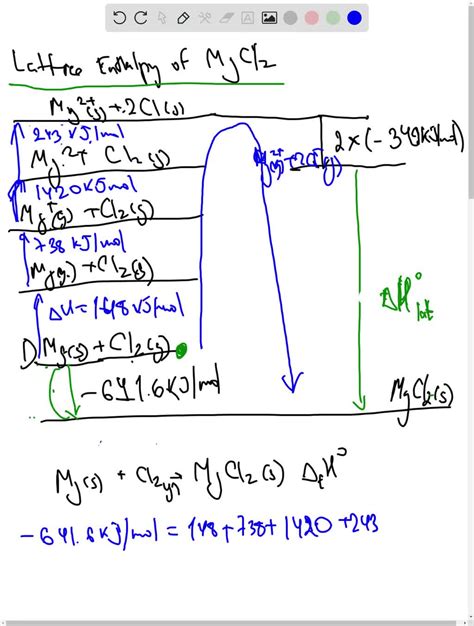 Lattice Enthalpy of MgCl2
Mg²⁺(g) + 2Cl(g)
243 kJ/mol
Mg²⁺ Cl2(g)
Mg²⁺(g) + 2Cl⁻(g)
2 x (-349 kJ/mol)
1420 KJ/mol
Mg⁺(g) + Cl2(g)
738 kJ/mol
Mg(g) + Cl2(g)
ΔH = 148 kJ/mol
ΔH°lat
Mg(s) + Cl2(g)
-641.6 KJ/mol
MgCl2(s)
Mg(s) + Cl2(g) → MgCl2(s) ΔfH°
-641.6 kJ/mol = 148 + 738 + 1420 + 243